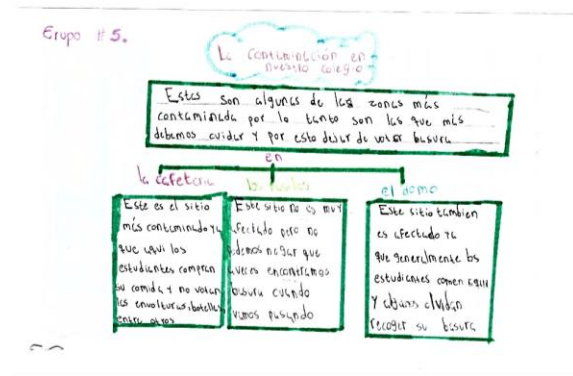 Grupo # 5.
La contaminación en
nuestro colegio
Estas son algunas de las zonas más
contaminada por lo tanto son las que más
debemos cuidar y por esto dejar de votar basura
en
la cafeteria
los pasillos
el domo
Este es el sitio
más contaminado ya
que aqui los
estudiantes compran
su comida y no votan
las envolturas, botellas
entre otros
Este sitio no es muy
afectado pero no
podemos negar que
aveces encontramos
basura cuando
vamos pasando
Este sitio tambien
es afectado ya
que generalmente los
estudiantes comen aqui
y algunos olvidan
recoger su basura